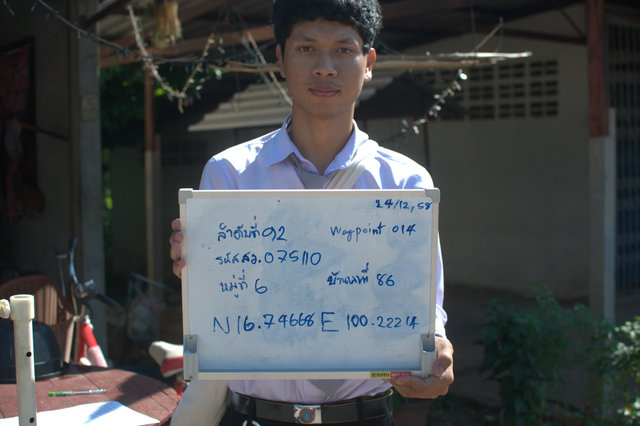 24/12,58
ลำดับที่ 092 waypoint 014
รหัสสว. 075110
หมู่ที่ 6 บ้านเลขที่ 86
N 16.74668 E 100.22214
TOYO